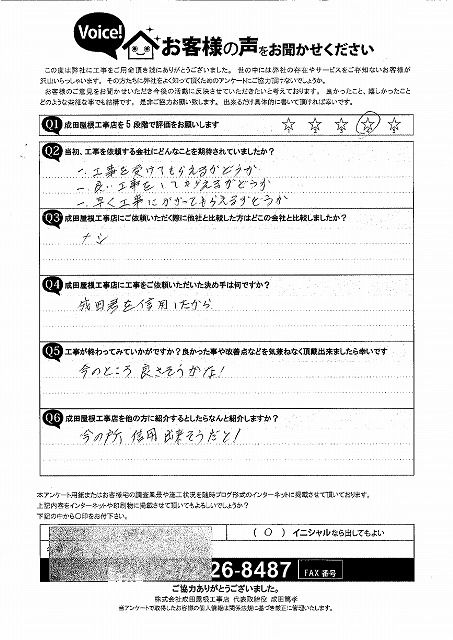 Voice!
お客様の声をお聞かせください
この度は弊社に工事をご用命頂き誠にありがとうございました。 世の中には弊社の存在やサービスをご存知ないお客様が
沢山いらっしゃいます。その方たちに弊社をよく知って頂くためのアンケートにご協力頂けないでしょうか。
お客様のご意見をお聞かせいただき今後の活動に反映させていただきたいと考えております。 良かったこと、嬉しかったこと
どのような些細な事でも結構です。 是非ご協力お願い致します。 出来るだけ具体的に書いて頂ければ幸いです。
Q1 成田屋根工事店を5段階で評価をお願いします ☆ ☆ ☆ ☆ ☆
Q2 当初、工事を依頼する会社にどんなことを期待されていましたか?
一、工事を受けてもらえるかどうか
一、良い工事をしてもらえるかどうか
一、早く工事にかかってもらえるかどうか
Q3 成田屋根工事店にご依頼いただく際に他社と比較した方はどこの会社と比較しましたか?
ナシ
Q4 成田屋根工事店に工事をご依頼いただいた決め手は何ですか?
成田君を信用したから
Q5 工事が終わってみていかがですか?良かった事や改善点などを気兼ねなく頂戴出来ましたら幸いです
今のところ良さそうかな!
Q6 成田屋根工事店を他の方に紹介するとしたらなんと紹介しますか?
今の所信用出来そうだと!
本アンケート用紙またはお客様宅の調査風景や施工状況を随時ブログ形式のインターネットに掲載させて頂いております。
上記内容をインターネットや印刷物に掲載させて頂いてもよろしいでしょうか?
下記の中から〇印をお付下さい。
( 〇 ) イニシャルなら出してもよい
26-8487 FAX番号
ご協力ありがとうございました。
株式会社成田屋根工事店 代表取締役 成田篤孝
当アンケートで取得したお客様の個人情報は関係法規に基づき厳正に管理いたします。